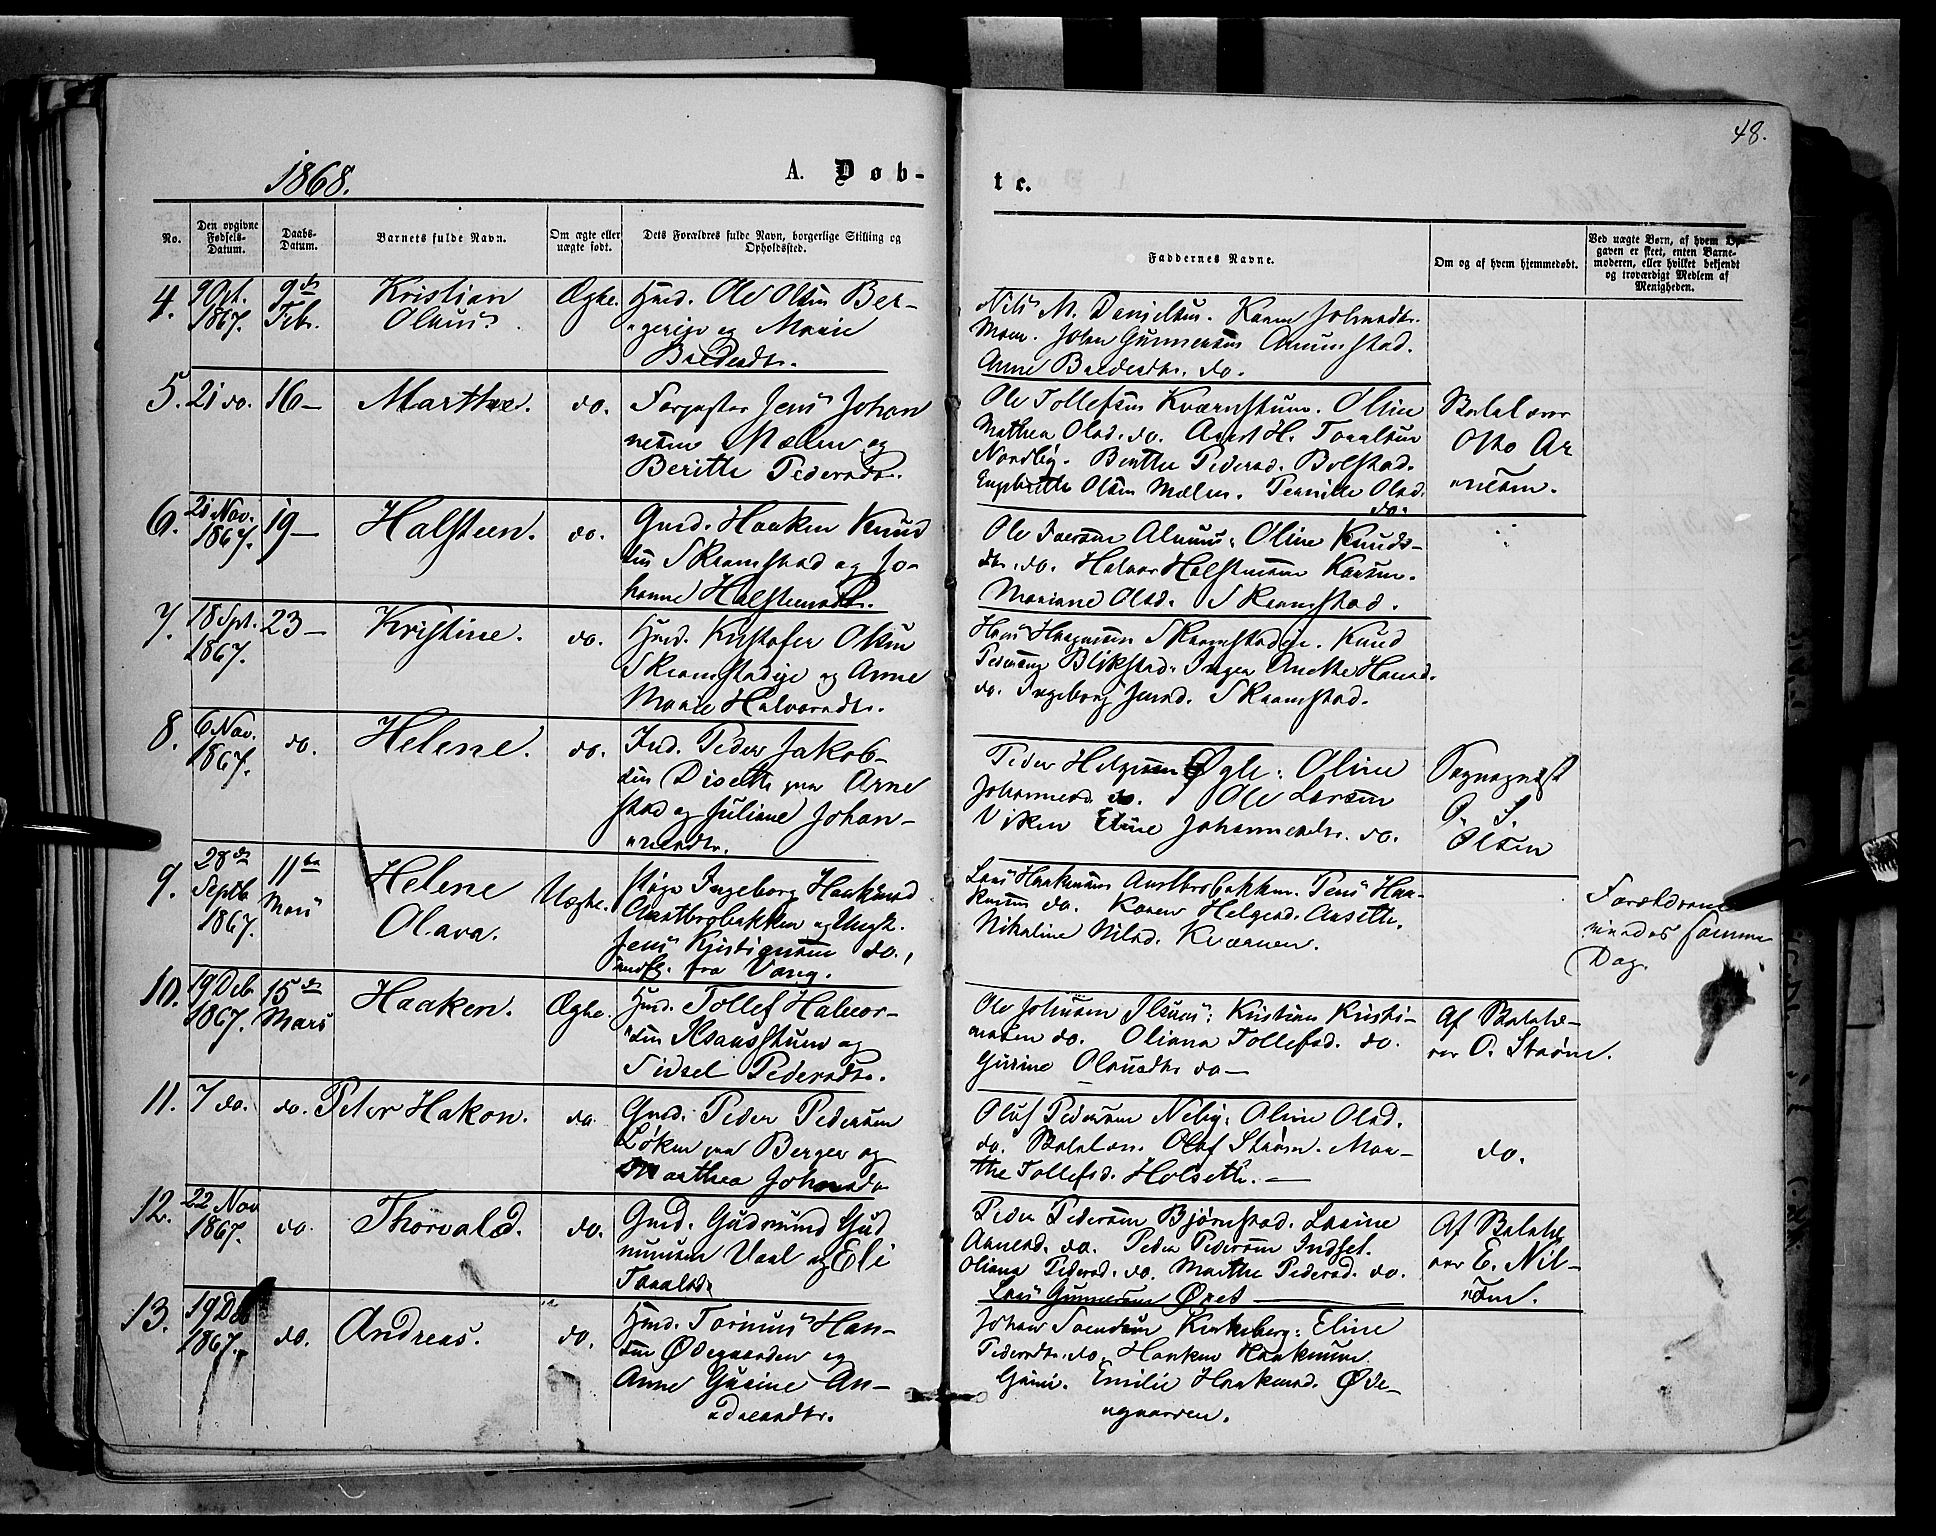 48.
1868.
A. Døb-
te.
No.
Den opgivne Fødsels-Datum.
Daabs-Datum.
Barnets fulde Navn.
Om ægte eller uægte født.
Dets Forældres fulde Navn, borgerlige Stilling og Opholdssted.
Faddernes Navne.
Om og af hvem hjemmedøbt.
Ved uægte Børn, af hvem Opgaven er skeet, enten Barnemoderen, eller hvilket bekjendt og troværdigt Medlem af Menigheden.
4.
9 Oct.
1867.
9de
Febr.
Kristian
Olaus.
Ægte.
Hmd. Ole Olsen Ber-
gereje og Marie
Baldersdtr.
Nils M. Danielsen. Karen Johnsdtr.
Moen. Johan Gunnersen
Anne Baldersdtr. do.
5.
21 do.
16-
Marthe.
do.
Jens Johan
nesen Mælen og
Beritte Pedersdtr.
Ole Tollefsen Kværnstuen. Oline
Mathea Olsd. do. H.
Nordby. Berthe Pedersd. Bolstad.
Engebrette Olsen Mælen. Pernille Olsd.
do.
Otto Ar
nesen.
6.
21 Nov.
1867.
19-
Halsteen.
do.
Gmd. Haaken Knud
sen Skramstad og Jo-
hanne Halsteensdtr.
Ole Iversen Oline Knuds-
dtr. do. Halvor Halsteensen
Mariane Olsd. Skramstad.
7.
18 Spt.
1867.
23-
Kristine.
do.
Hmd. Kristofer Olsen
Skramstadeje og Anne
Marie Halvorsdtr.
Hans Haagensen Skramstadeje. Knud
Pedersen Blikstad. Inger Anette Hansd.
do. Ingeborg Jensd. Skramstad.
8.
6 Nov.
1867.
do.
Helene.
do.
Ind. Peder Jakob-
sen Diseth paa Arne
stad og Juliane Johan-
nesdtr.
Peder Helgesen Øgle. Oline
Johannesd. do. Ole Larsen
Viken Eline Johannesdtr. do.
Sognepræst
P. S.
Olsen
9.
28de
Septb.
1867.
11te
Mars
Helene
Olava.
Uægte.
Pige Ingeborg Haakensd
Aastbrobakken og Ungk.
Jens Kristiansen do.,
indfl. fra Vang.
Lars Haakensen Aastbrobakken. Jens Haa-
kensen do. Karen Helgesd. Aaseth.
Nikoline Nilsd. Kværnen.
Forældrene
viedes samme
Dag.
10.
19 Deb
1867.
15de
Mars
Haaken.
Ægte.
Hmd. Tollef Halvor-
sen Klaasstuen og
Sidsel Pedersdtr.
Ole Johnsen Kristian Kristi-
ansen do. Oliana Tollefsd. do.
Gurine Olausdtr do-
Af Skolelæ-
rer O. Strøm.
11.
7 do.
do.
Peter Hakon.
do.
Gmd. Peder Pedersen
Løken paa Berger og
Marthea Johnsd.
Oluf Pedersen Neby. Oline Olsd.
do. Skolelær. Olaf Strøm. Mar-
the Tollefsd. Holseth. -
do.
12.
22 Nov
1867.
do.
Thorvald.
do.
Gmd. Gudmund Gud
munsen Vaal og Eli
Taraldsd.
Peder Pedersen Bjørnstad. Lasine
Arnesd. do. Peder Pedersen Indset.
Oliana Pedersd. do. Marthe Pedersd. do.
Lars Gunnersen Øset
Af Skolelæ
rer E. Nil-
sen.
13.
19 Deb
1867.
do.
Andreas.
do.
Hmd. Torinus Han-
sen Ødegaarden og
Anne Gurine An-
dreasdtr.
Johan Svendsen Kirkeberg. Eline
Pedersdtr. do. Haaken Haakensen
Emilie Haakensd. Øde-
gaarden.